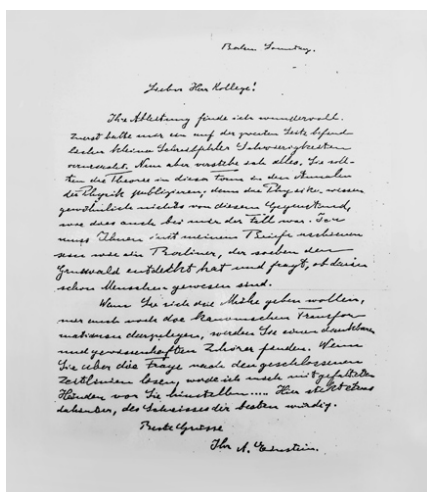 Berlin Sonntag.
Lieber Herr Kollege!
Ihre Ableitung finde ich wundervoll.
Zuerst hatte mir ein auf der zweiten Seite befind-
licher kleiner Schreibfehler Schwierigkeiten
verursacht. Nun aber verstehe ich alles. Sie soll-
ten die Theorie in dieser Form in den Annalen
der Physik publizieren, denn die Physiker wissen
gewöhnlich nichts von diesem Gegenstand,
wie dies auch bei mir der Fall war. Ich
muss Ihnen mit meinem Briefe erschienen
sein wie ein Berliner, der soeben den
Grunewald entdeckt hat und fragt, ob darin
schon Menschen gewesen sind.
Wenn Sie sich die Mühe geben wollen,
mir auch noch die kanonischen Transfor-
mationen darzulegen, werden Sie einen dankbaren
und gewissenhaften Zuhörer finden. Wenn
Sie aber die Frage nach den geschlossenen
Zeitlinien lösen, werde ich mich mit gefalteten
Händen vor Sie hinstellen.... Hier steckt etwas
dahinter, des Schweisses der Besten würdig.
Beste Grüsse
Ihr A. Einstein.